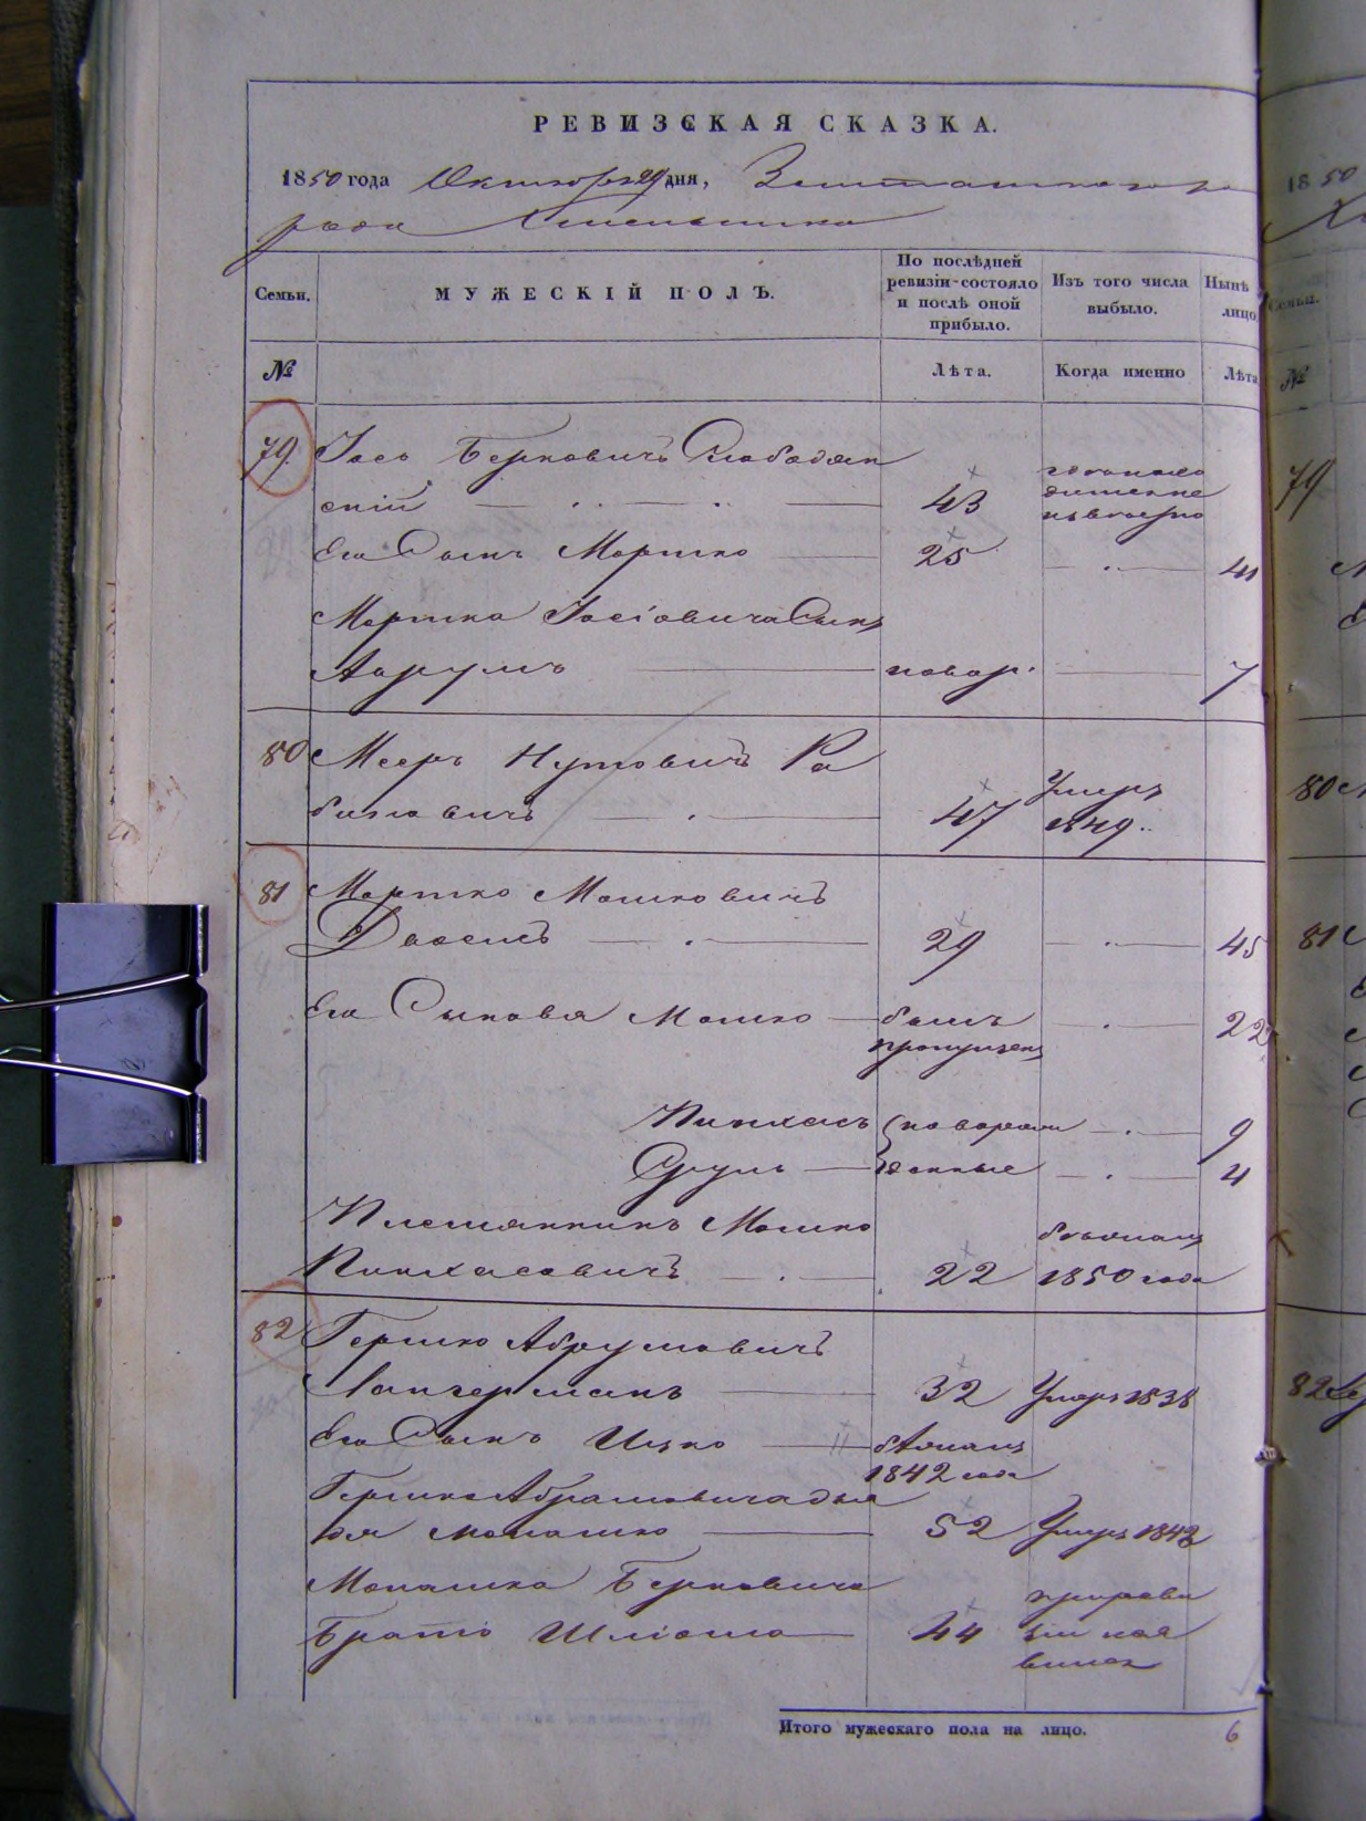 РЕВИЗСКАЯ СКАЗКА.
1850 года Октября 29 дня, Заштатнаго го
рода Хмельника
Семьи.
МУЖЕСКІЙ ПОЛЪ.
По послѣдней
ревизіи состояло
и послѣ оной
прибыло.
Изъ того числа
выбыло.
Нынѣ
лицо
№
Лѣта.
Когда именно
Лѣта
79. Іось Берковичъ Слободян
скій 43
Его Сынъ Мортко 25 41
Мортка Іосіовича Сынъ
Аврумъ новор. 7
80 Мееръ Нутовичъ Ра
биновичъ 47 Умеръ
1849
81 Мортко Мошковичъ
29 45
Его Сыновья Мошко былъ 22
пропущенъ
Пинхасъ новорож 9
Сруль денные 4
Племянникъ Мошко бѣжалъ
Пинхасовичъ 22 1850 года
82 Гершко Абрумовичъ
Лангерманъ 32 Умеръ 1838
Его Сынъ Ицко 11 бѣжалъ
1842 года
Гершка Абрамовича дя
дя Монашко 52 Умеръ 1843
Монашка Берковича
Братъ Шліома 44 при реви
зіи не я
вился
Итого мужескаго пола на лицо. 6
18 50
Семьи.
№
79
80
81
82